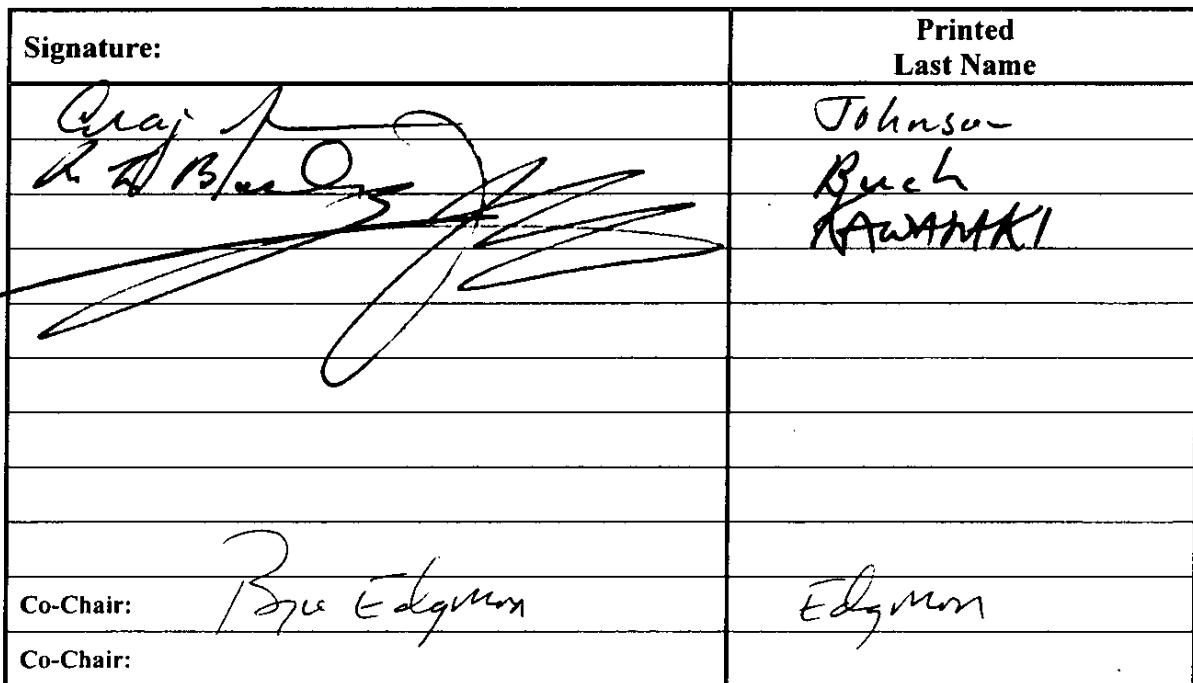 Signature: Printed
Last Name
Craig Johnson
Buch
KAWASAKI
Co-Chair: Bryce Edgmon Edgmon
Co-Chair: